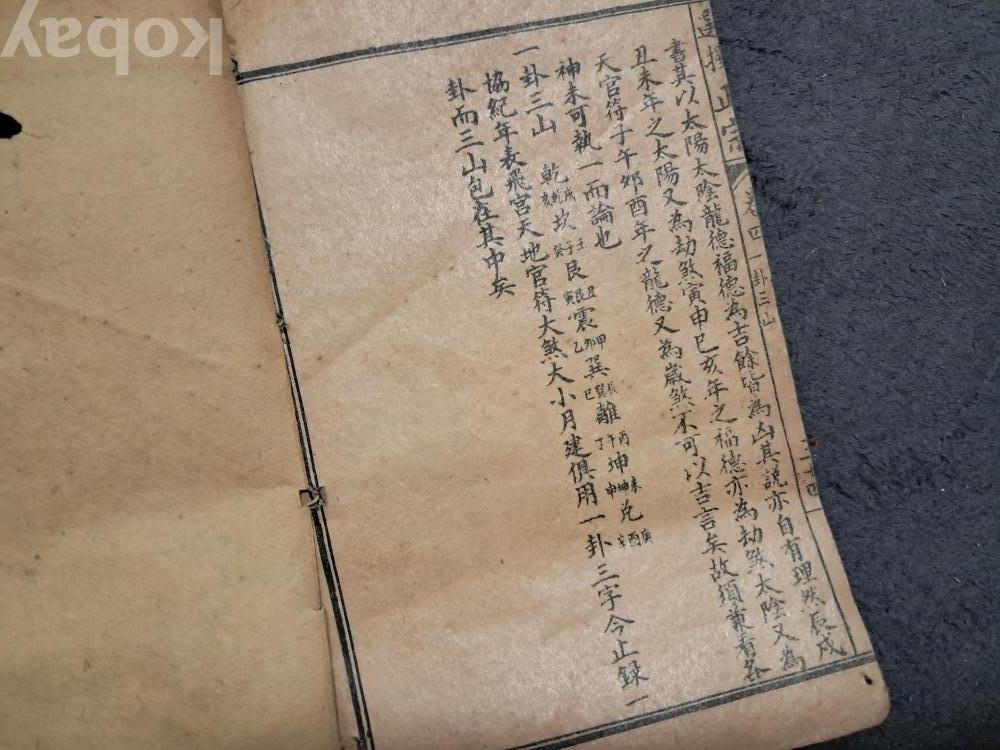 選擇正宗 卷四 一卦三山 三十四
書其以太陽太陰龍德福德為吉餘皆為凶其說亦自有理然辰戌
丑未年之太陽又為劫煞寅申巳亥年之福德亦為劫煞太陰又為
天官符子午卯酉年之龍德又為歲煞不可以吉言矣故須兼看各
神未可執一而論也
一卦三山 乾戌乾亥坎壬子癸艮丑艮寅震甲卯乙巽辰巽巳離丙午丁坤未坤申兌庚酉辛
協紀年表飛宮天地官符大煞大小月建俱用一卦三字今止録一
卦而三山包在其中矣
kobay